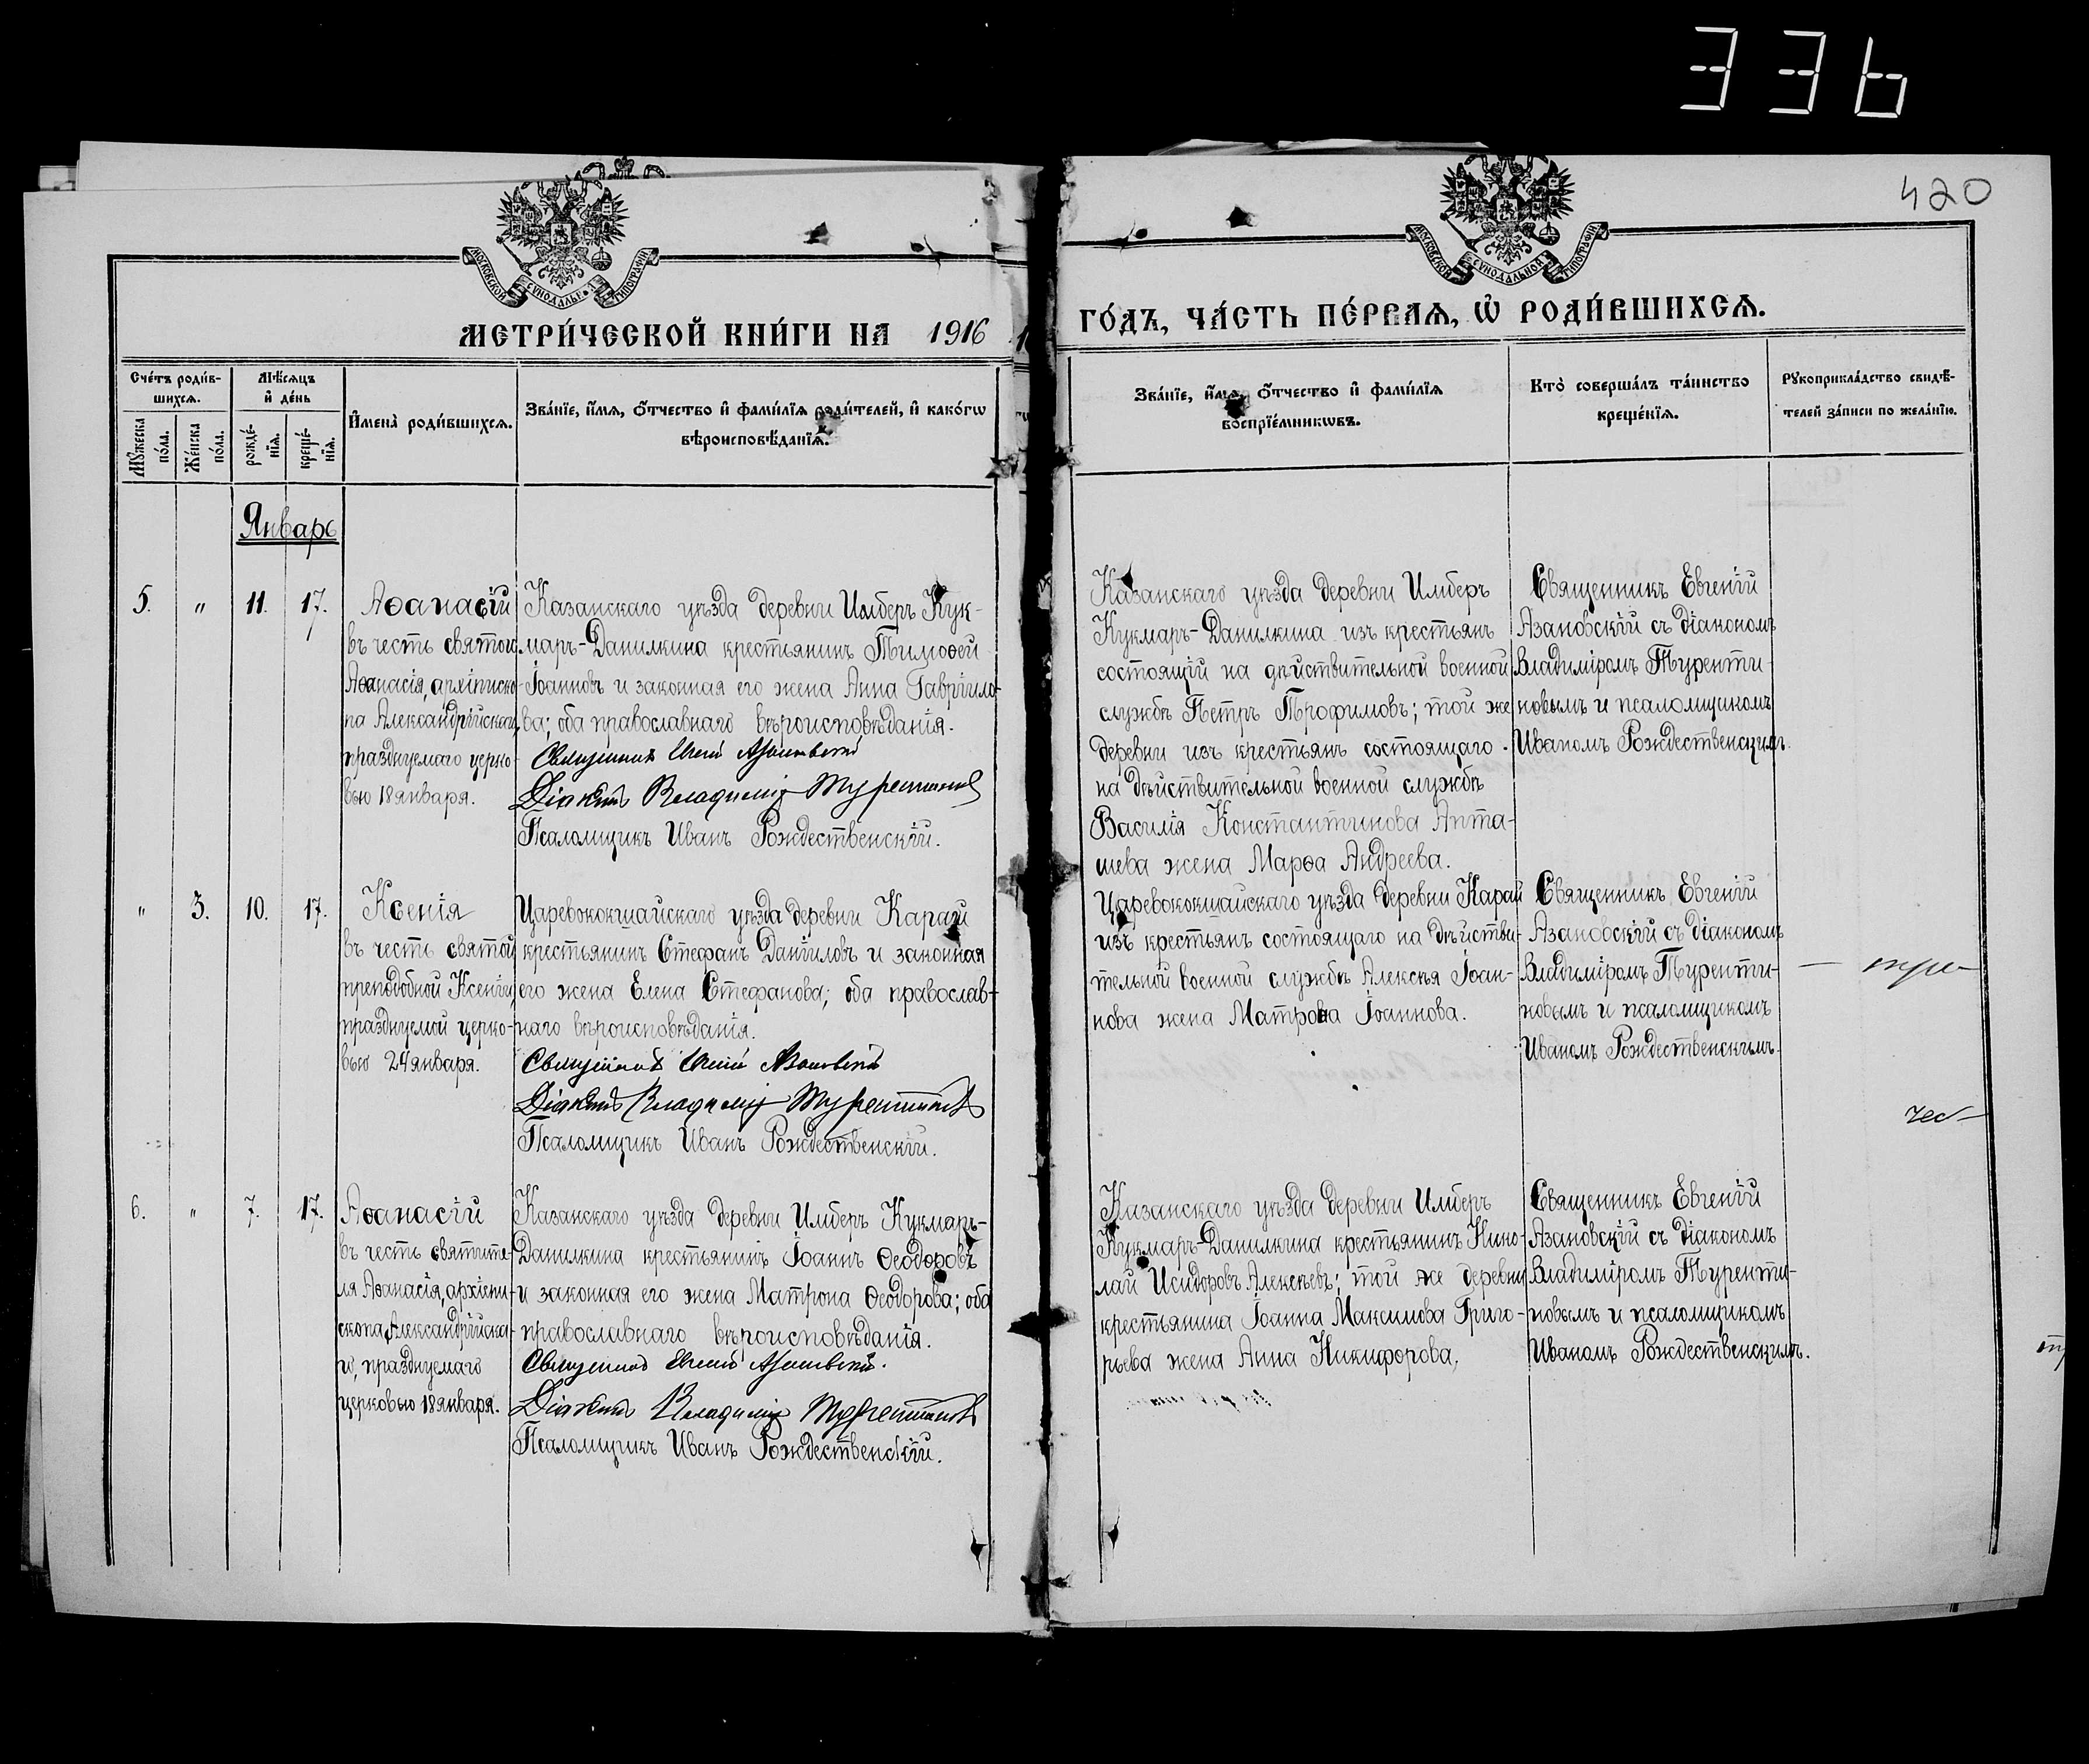 336
420
МОСКОВСКОЙ СѴНОДАЛЬНОЙ ТИПОГРАФІИ
МОСКОВСКОЙ СѴНОДАЛЬНОЙ ТИПОГРАФІИ
МЕТРИ́ЧЕСКОЙ КНИ́ГИ НА 1916
ГО́ДЪ, ЧА́СТЬ ПЕ́РВАѦ, Ѽ РОДИ́ВШИХСѦ.
Сче́тъ роди́в-
шихсѧ.
Мꙋ́жеска
по́ла.
Же́нска
по́ла.
Мѣ́сѧцъ
и҆ де́нь
рожде́-
нїѧ.
креще́-
нїѧ.
И҆мена̀ роди́вшихсѧ.
Зва́нїе, и҆́мѧ, ѻ҆́тчество и҆ фами́лїѧ роди́телей, и҆ како́гѡ
вѣроисповѣ́данїѧ.
Зва́нїе, и҆́мѧ, ѻ҆́тчество и҆ фами́лїѧ
воспрїе́мникѡвъ.
Кто̀ соверша́лъ та́инство
креще́нїѧ.
Рꙋкоприкла́дство свидѣ́-
телей за́писи по жела́нїю.
Январь
5. " 11. 17.
Аѳанасій
въ честь святого
Аѳанасія, архіписко-
па Александрійскаго,
празднуемаго церко-
вью 18 января.
Казанскаго уѣзда деревни Имберъ Кук-
маръ-Данилкина крестьянинъ Тимоѳей
Іоанновъ и законная его жена Анна Гаврило-
ва; оба православнаго вѣроисповѣданія.
Священникъ Евгеній Азановскій
Діаконъ Владиміръ Турентиновъ
Псаломщикъ Иванъ Рождественскій.
Казанскаго уѣзда деревни Имберъ
Кукмаръ-Данилкина изъ крестьянъ
состоящій на дѣйствительной военной
службѣ Петръ Трофимовъ; той же
деревни изъ крестьянъ состоящаго
на дѣйствительной военной службѣ
Василія Константинова Апта-
шева жена Марѳа Андреева.
Священникъ Евгеній
Азановскій съ діакономъ
Владиміромъ Туренти-
новымъ и псаломщикомъ
Иваномъ Рождественскимъ.
" 3. 10. 17.
Ксенія
въ честь святой
преподобной Ксеніи,
празднуемой церко-
вью 24 января.
Царевококшайскаго уѣзда деревни Карай
крестьянинъ Стефанъ Даніиловъ и законная
его жена Елена Стефанова; оба православ-
наго вѣроисповѣданія.
Священникъ Евгеній Азановскій
Діаконъ Владиміръ Турентиновъ
Псаломщикъ Иванъ Рождественскій.
Царевококшайскаго уѣзда деревни Карай
изъ крестьянъ состоящаго на дѣйстви-
тельной военной службѣ Алексѣя Іоан-
нова жена Матрона Іоаннова.
Священникъ Евгеній
Азановскій съ діакономъ
Владиміромъ Туренти-
новымъ и псаломщикомъ
Иваномъ Рождественскимъ.
6. " 7. 17.
Аѳанасій
въ честь святите-
ля Аѳанасія, архіепи-
скопа Александрійска-
го, празднуемаго
церковью 18 января.
Казанскаго уѣзда деревни Имберъ Кукмаръ-
Данилкина крестьянинъ Іоаннъ Ѳеодоровъ
и законная его жена Матрона Ѳеодорова; оба
православнаго вѣроисповѣданія.
Священникъ Евгеній Азановскій.
Діаконъ Владиміръ Турентиновъ
Псаломщикъ Иванъ Рождественскій.
Казанскаго уѣзда деревни Имберъ
Кукмаръ-Данилкина крестьянинъ Нико-
лай Исидоровъ Алексѣевъ; той же деревни
крестьянина Іоанна Максимова Григо-
рьева жена Анна Никифорова.
Священникъ Евгеній
Азановскій съ діакономъ
Владиміромъ Туренти-
новымъ и псаломщикомъ
Иваномъ Рождественскимъ.